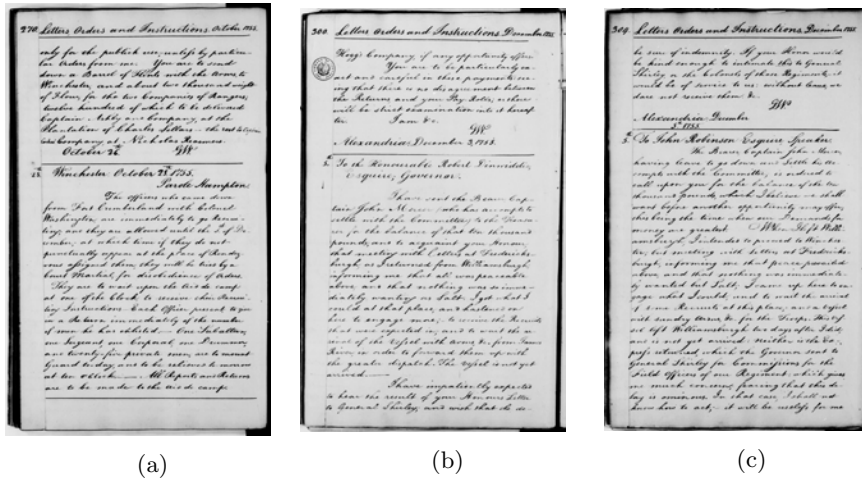 270. Letters Orders and Instructions. October 1755.
only for the publick use, unless by particu-
lar Orders from me. You are to send
down a Barrel of Flints with the Arms, to
Winchester, and about two thousand weight
of Flour, for the two Companies of Rangers;
twelve hundred of which to be delivered
Captain Ashby and Company, at the
Plantation of Charles Sellars - the rest to Captain
Cocks' Company at Nicholas Reasmers.
October 26. GW
28. Winchester: October 28th 1755.
Parole Hampton.
The officers who came down
from Fort Cumberland with Colonel
Washington, are immediately to go Recrui-
ting; and they are allowed until the 1st of De-
cember, at which time if they do not
punctually appear at the place of Rendez-
vous assigned them, they will be tried by a
Court Martial for disobedience of Orders.
They are to wait upon the Aid de camp
at one of the Clock to receive their Recrui-
ting Instructions. Each Officer present to give
in a Return immediately of the number
of men he has enlisted. One Subaltern,
one Sergeant, one Corporal, one Drummer,
and twenty-five private men, are to mount
Guard to-day, and to be relieved to-morrow
at ten o'clock. All Reports and Returns
are to be made to the Aid de camp.
(a)
300. Letters Orders and Instructions. December 1755.
Hogg's Company, if any opportunity offers.
You are to be particularly ex-
act and careful in these payments: see-
ing that there is no disagreement between
the Returns and your Pay Rolls; as there
will be strict examination into it hereaf-
ter. I am &c.
GW
Alexandria: December 5, 1755.
5. To the Honourable Robert Dinwiddie,
Esquire; Governor.
I have sent the Bearer, Cap-
tain John Mercer (who has accompts to
settle with the Committee) to the Treasu-
rer for the balance of that ten thousand
pounds; and to acquaint your Honour,
that meeting with Letters at Fredericks-
burgh, as I returned from Williamsburgh,
informing me that all was peaceable
above, and that nothing was so imme-
diately wanting as Salt; I got what I
could at that place, and hastened on
here to engage more; to receive the Recruits
that were expected in; and to wait the ar-
rival of the Vessel with arms, &c. from James
River, in order to forward them up with
the greater dispatch. The Vessel is not yet
arrived.
I have impatiently expected
to hear the result of your Honours Letter
to General Shirley; and wish that the de-
(b)
304. Letters Orders and Instructions. December 1755.
be sure of indemnity. If your Honor would
be kind enough to intimate this to General
Shirley, or the Colonels of those Regiments, it
would be of service to us: without leave, we
dare not receive them &c.
GW
Alexandria: December
5th 1755.
5. To John Robinson Esquire; Speaker.
The Bearer, Captain John Mercer
having leave to go down and settle his Ac-
compts with the Committee, is ordered to
call upon you for the balance of the ten
thousand pounds, which I believe we shall
want before another opportunity may offer;
this being the time when our Demands for
money are greatest. When I left Willi-
amsburgh, I intended to proceed to Winches-
ter, but meeting with letters at Fredericks-
burgh, informing me that peace possessed
above, and that nothing was immediate-
ly wanted but Salt; I came up here to en-
gage what I could, and to wait the arrival
of some Recruits at this place; and a Vessel
with sundry stores &c. for the Troops. This ves-
sel left Williamsburgh two days after I did,
and is not yet arrived: neither is the Ex-
press returned, which the Governor sent to
General Shirley for Commissions for the
Field Officers of our Regiment; which gives
me much concern, fearing that this de-
lay is ominous. In that case, I shall not
know how to act; it will be useless for me
(c)